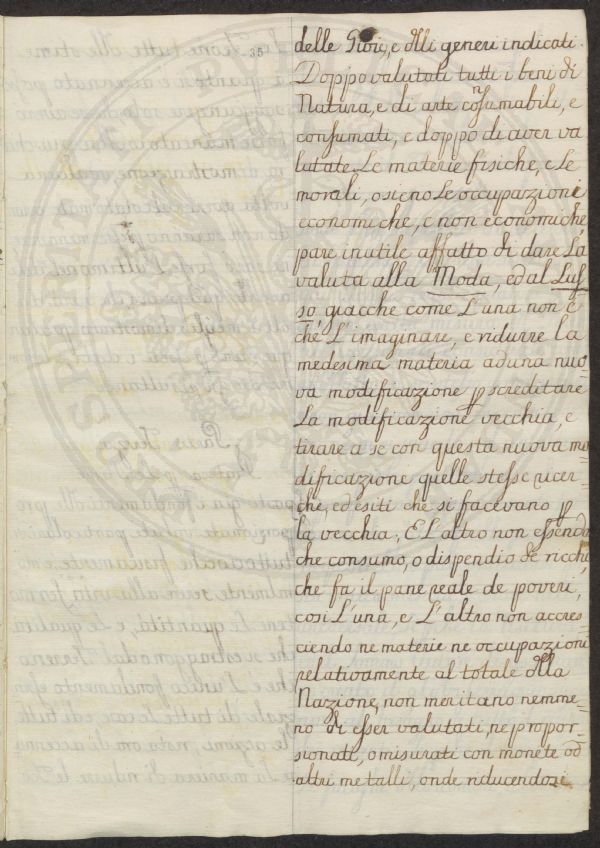 35
delle Gioie, e dlli generi indicati.
Doppo valutati tutti i beni di
Natura, e di arte consumabili, e
consumati, e doppo di aver va
lutate Le materie fisiche, e Le
morali, o sieno Le occupazioni
economiche, e non economiche
pare inutile affatto di dare La
valuta alla Moda, ed al Lus
so giacche come L'una non é
che L'imaginare, e ridurre la
medesima materia ad una nuo
va modificazione p screditare
La modificazione vecchia, e
tirare a se con questa nuova mo
dificazione quelle stesse ricer
che, ed esiti che si facevano p
la vecchia, E L'altro non essendo
che consumo, o dispendio de ricchi,
che fa il pane reale de poveri,
cosi L'una, e L'altro non accres
ciendo ne materie ne occupazioni
relativamente al totale dlla
Nazione, non meritano nemme
no di esser valutati, ne propor
sionati, o misurati con monete od
altri metalli, onde riducendosi